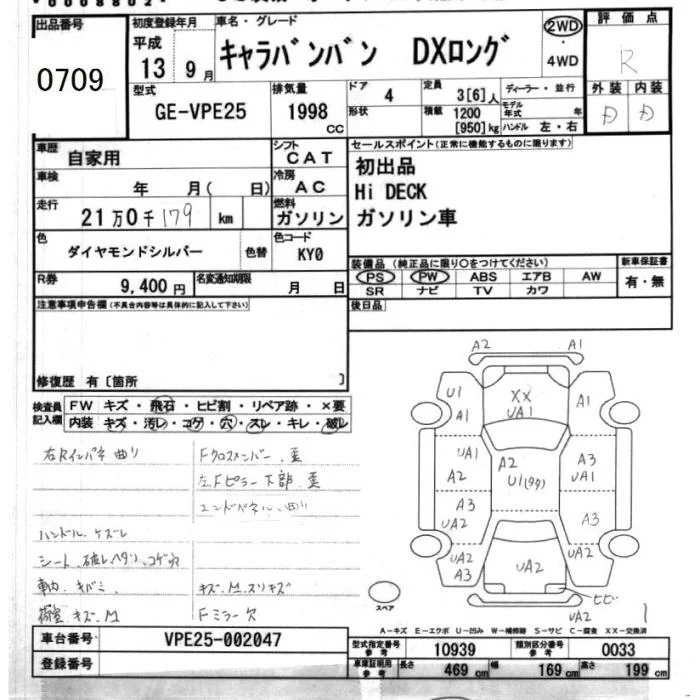 出品番号
0709
初度登録年月
平成
13 9月
車名・グレード
キャラバンバン DXロング
2WD
・
4WD
評価点
R
外装 内装
D D
型式
GE-VPE25
排気量
1998
cc
ドア
4
形状
定員
3[6]人
積載
1200
[950]kg
ディーラー・並行
モデル年式 年
ハンドル 左・右
車歴
自家用
シフト
CAT
車検
年 月( 日)
冷房
AC
走行
21万0千179 km
燃料
ガソリン
色
ダイヤモンドシルバー
色替
色コード
KY0
R券
9,400円
名変通知期限
月 日
セールスポイント(正常に機能するものに限ります)
初出品
Hi DECK
ガソリン車
装備品(純正品に限り○をつけてください)
PS PW ABS エアB AW
SR ナビ TV カワ
新車保証書
有・無
後日品
注意事項申告欄(不具合内容等は具体的に記入して下さい)
修復歴 有〔箇所 〕
検査員
記入欄
FW キズ・飛石・ヒビ割・リペア跡・×要
内装 キズ・汚レ・コゲ・穴・スレ・キレ・破レ
右Rインパネ 曲り
Fクロスメンバー 歪
左Fピラー下部 歪
エンドパネル 曲り
ハンドル ケズレ
シート 破レ ヘタリ コゲ穴
車内 キバミ
キズ M スリキズ
荷室 キズ M
Fミラー欠
A2 A1
U1 XX A1
A1 UA1
UA1 A2 A3
A2 U1(タタ) UA1
A3 A3
UA2
UA2 UA2 UA2
A3
ヒビ
UA2
スペア
1
A-キズ E-エクボ U-凹み W-補修跡 S-サビ C-腐食 XX-交換済
車台番号
VPE25-002047
登録番号
型式指定番号
参考
10939
類別区分番号
参考
0033
車庫証明用
参考
長さ
469 cm
幅
169 cm
高さ
199 cm